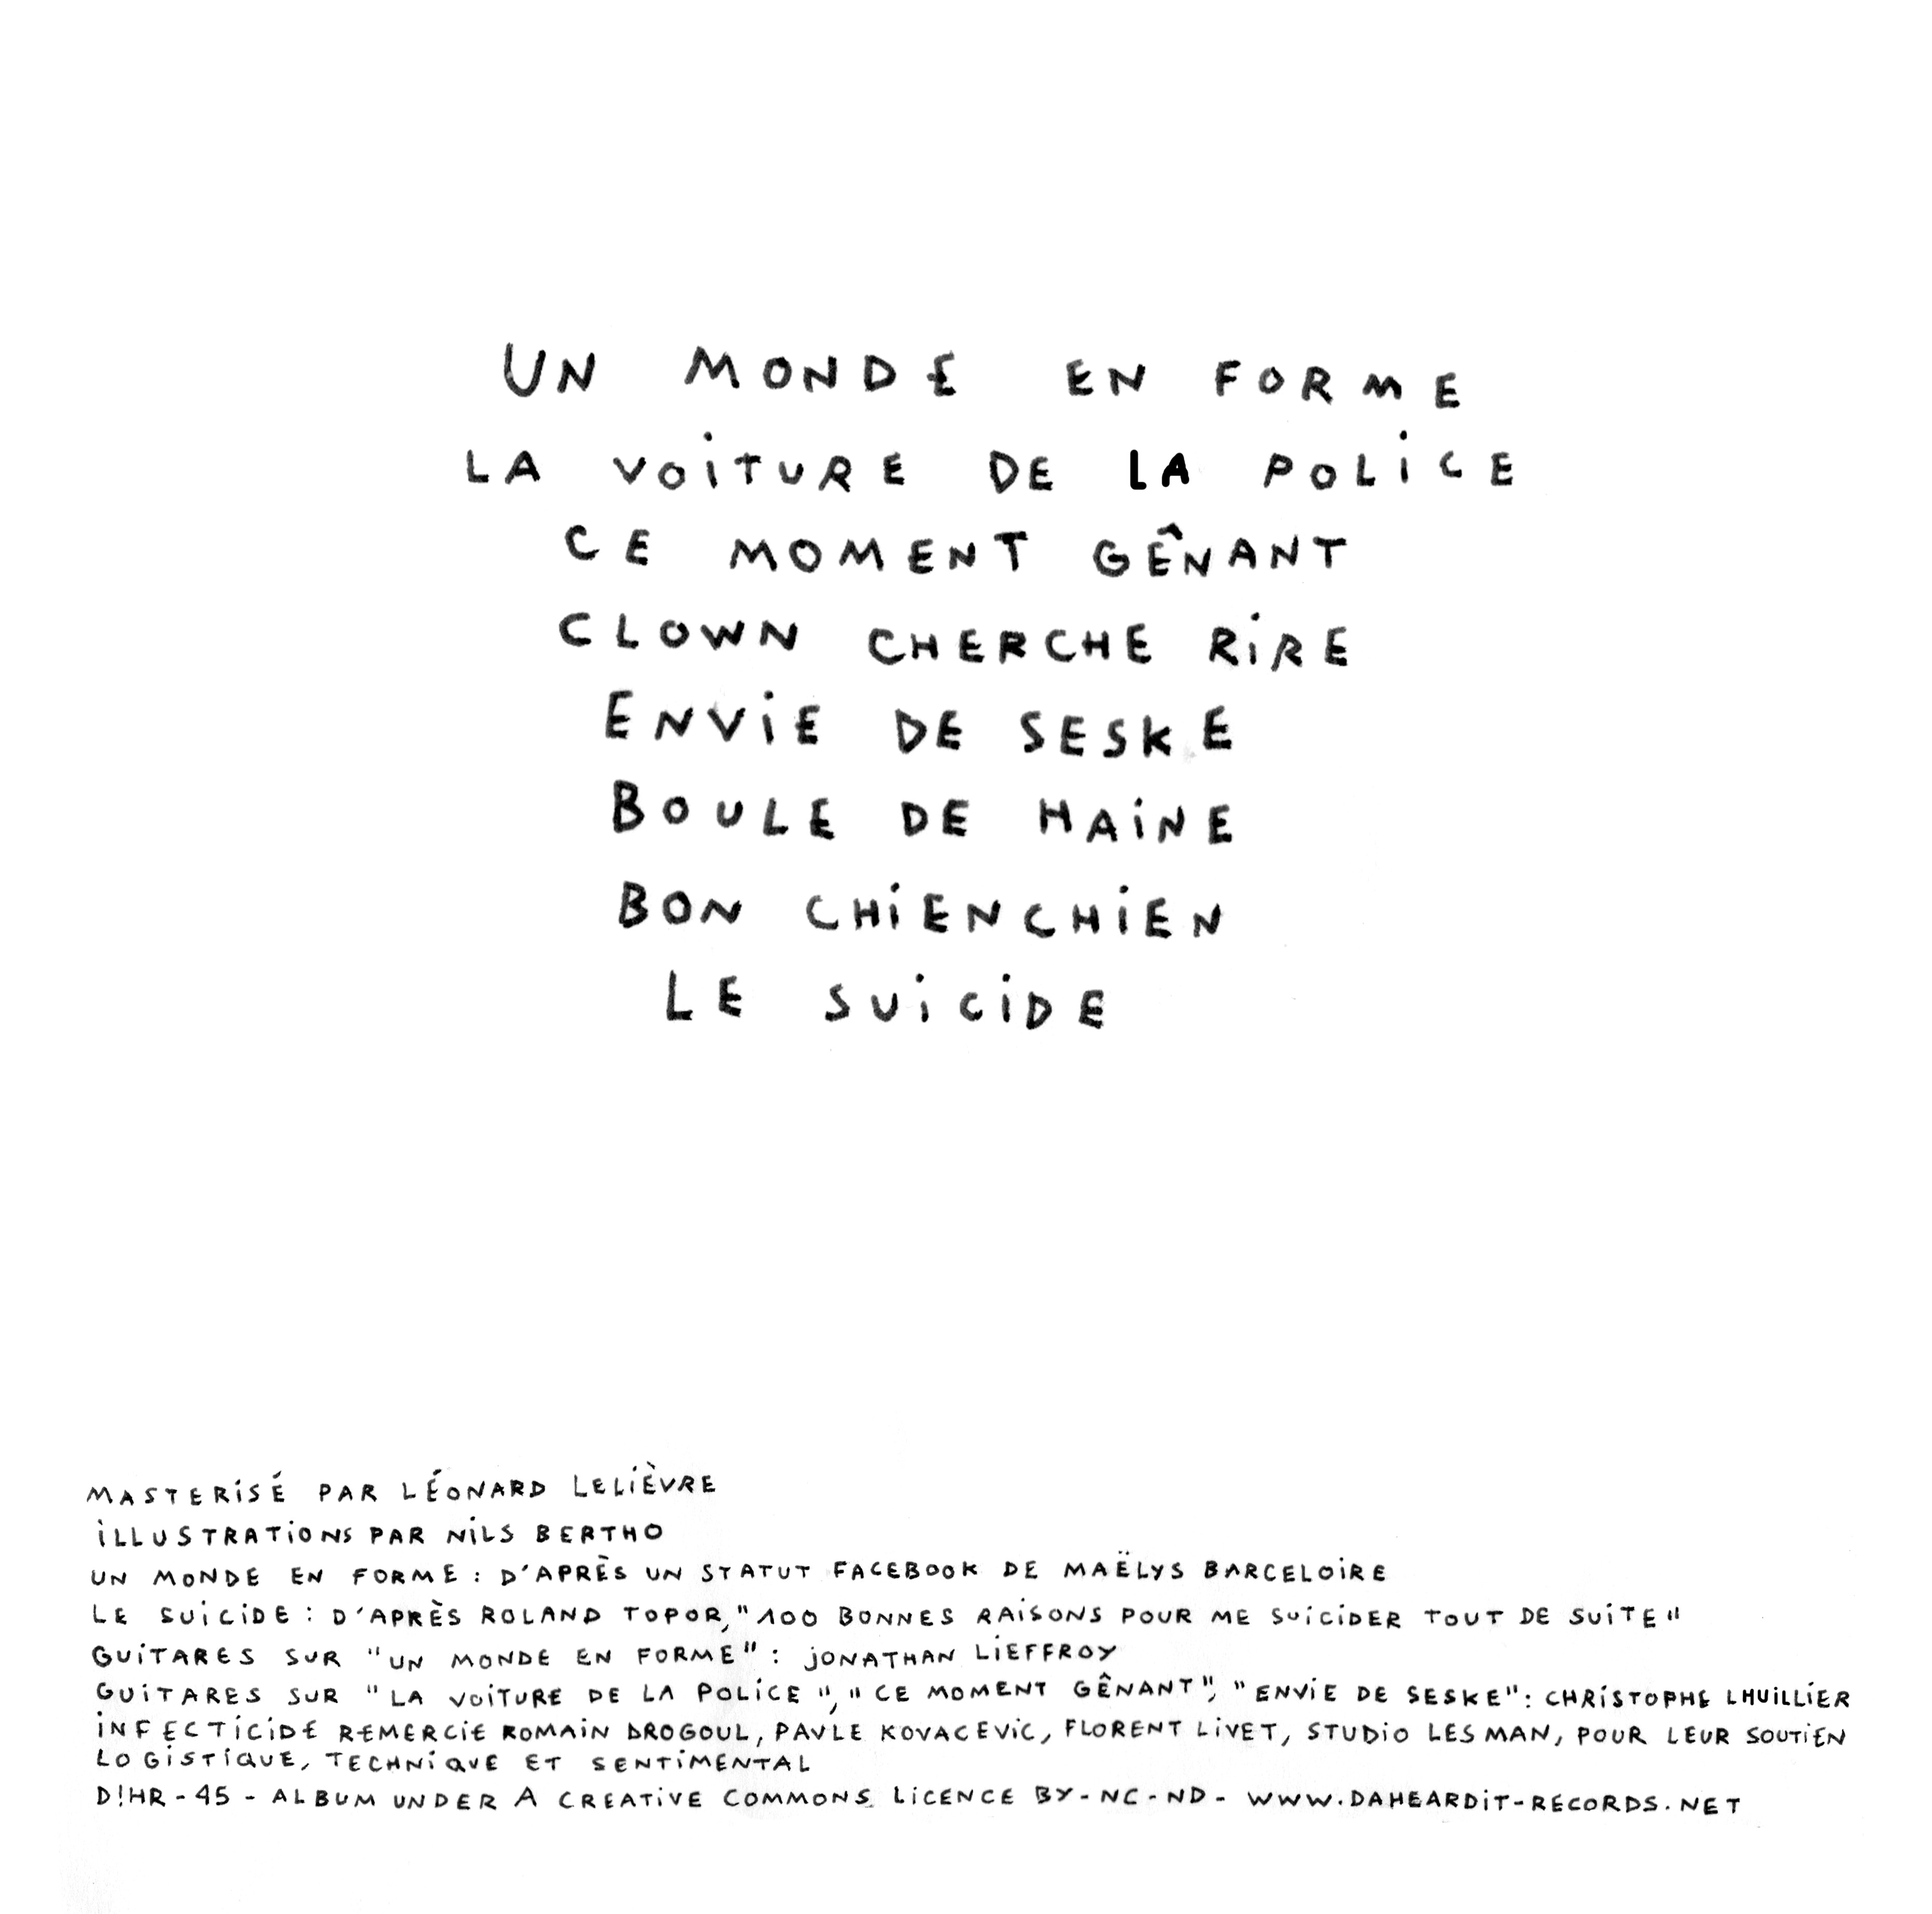 UN MONDE EN FORME
LA VOITURE DE LA POLICE
CE MOMENT GÊNANT
CLOWN CHERCHE RIRE
ENVIE DE SESKE
BOULE DE HAINE
BON CHIENCHIEN
LE SUICIDE
MASTERISÉ PAR LÉONARD LELIÈVRE
ILLUSTRATIONS PAR NILS BERTHO
UN MONDE EN FORME : D'APRÈS UN STATUT FACEBOOK DE MAËLYS BARCELOIRE
LE SUICIDE : D'APRÈS ROLAND TOPOR, "100 BONNES RAISONS POUR ME SUICIDER TOUT DE SUITE"
GUITARES SUR "UN MONDE EN FORME" : JONATHAN LIEFFROY
GUITARES SUR "LA VOITURE DE LA POLICE", "CE MOMENT GÊNANT", "ENVIE DE SESKE" : CHRISTOPHE LHUILLIER
INFECTICIDE REMERCIE ROMAIN DROGOUL, PAVLE KOVACEVIC, FLORENT LIVET, STUDIO LES MAN, POUR LEUR SOUTIEN
LOGISTIQUE, TECHNIQUE ET SENTIMENTAL
D!HR - 45 - ALBUM UNDER A CREATIVE COMMONS LICENCE BY-NC-ND - WWW.DAHEARDIT-RECORDS.NET